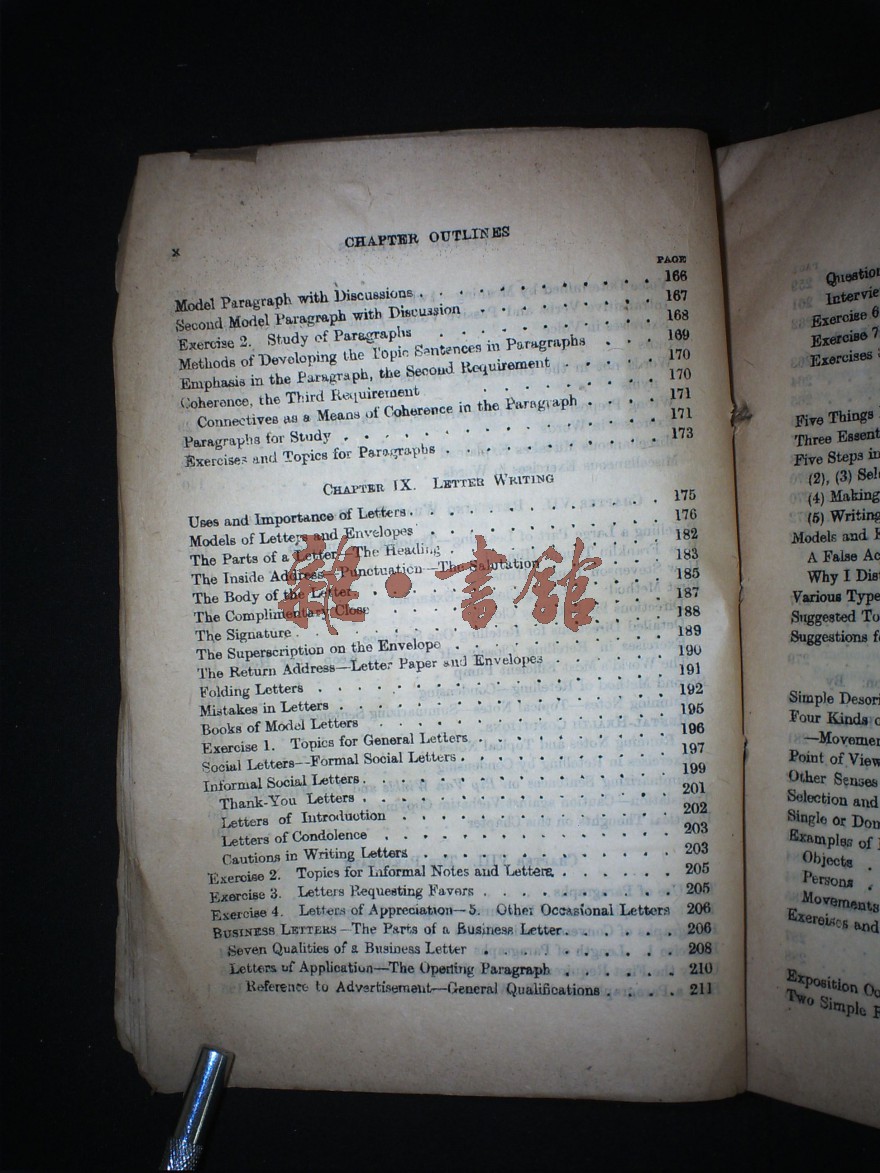 x
CHAPTER OUTLINES
PAGE
Model Paragraph with Discussions . . . . . . . . . . . 166
Second Model Paragraph with Discussion . . . . . . . . 167
Exercise 2. Study of Paragraphs . . . . . . . . . . 168
Methods of Developing the Topic Sentences in Paragraphs . . . 169
Emphasis in the Paragraph, the Second Requirement . . . . . 170
Coherence, the Third Requirement . . . . . . . . 170
Connectives as a Means of Coherence in the Paragraph . . . . 171
Paragraphs for Study . . . . . . . . . . . . . 171
Exercises and Topics for Paragraphs . . . . . . . . . 173
CHAPTER IX. LETTER WRITING
Uses and Importance of Letters . . . . . . . . . . . 175
Models of Letters and Envelopes . . . . . . . . . . 176
The Parts of a Letter—The Heading . . . . . . . . . 182
The Inside Address—Punctuation—The Salutation . . . . . 183
The Body of the Letter . . . . . . . . . . . . 185
The Complimentary Close . . . . . . . . . . . 187
The Signature . . . . . . . . . . . . . . 188
The Superscription on the Envelope . . . . . . . . . 189
The Return Address—Letter Paper and Envelopes . . . . . 190
Folding Letters . . . . . . . . . . . . . . 191
Mistakes in Letters . . . . . . . . . . . . . 192
Books of Model Letters . . . . . . . . . . . . 195
Exercise 1. Topics for General Letters . . . . . . . . 196
Social Letters—Formal Social Letters . . . . . . . . . 197
Informal Social Letters . . . . . . . . . . . . 199
Thank-You Letters . . . . . . . . . . . . . 201
Letters of Introduction . . . . . . . . . . . 202
Letters of Condolence . . . . . . . . . . . . 203
Cautions in Writing Letters . . . . . . . . . . 203
Exercise 2. Topics for Informal Notes and Letters . . . . . 205
Exercise 3. Letters Requesting Favors . . . . . . . . 205
Exercise 4. Letters of Appreciation—5. Other Occasional Letters 206
BUSINESS LETTERS—The Parts of a Business Letter . . . . . 206
Seven Qualities of a Business Letter . . . . . . . . 208
Letters of Application—The Opening Paragraph . . . . . . 210
Reference to Advertisement—General Qualifications . . . . 211
雜·書館
Question
Intervie
Exercise 6
Exercise 7
Exercises
Five Things
Three Essent
Five Steps in
(2), (3) Sele
(4) Making
(5) Writing
Models and
A False Ac
Why I Dis
Various Type
Suggested To
Suggestions fo
Simple Descri
Four Kinds o
—Movemen
Point of View
Other Senses
Selection and
Single or Dom
Examples of
Objects .
Persons .
Movements
Exercises and
Exposition Oc
Two Simple